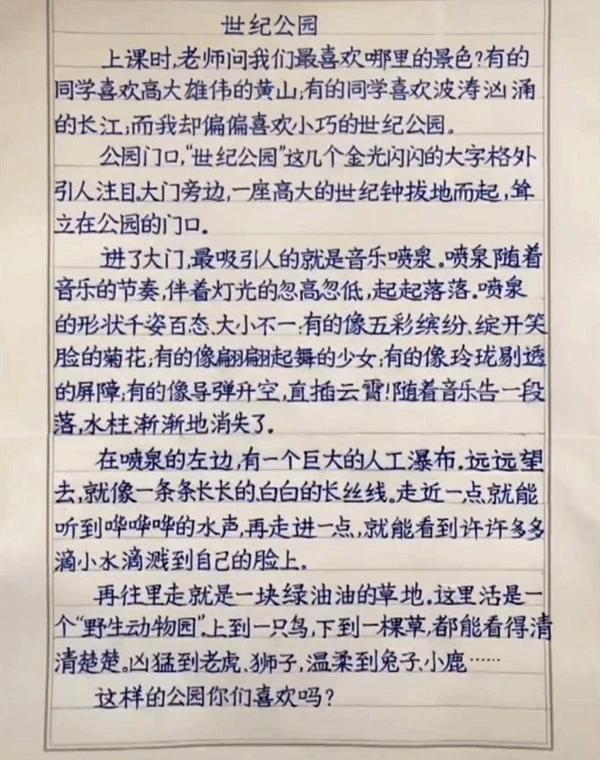 世纪公园
上课时,老师问我们最喜欢哪里的景色?有的
同学喜欢高大雄伟的黄山;有的同学喜欢波涛汹涌
的长江;而我却偏偏喜欢小巧的世纪公园。
公园门口,“世纪公园”这几个金光闪闪的大字格外
引人注目。大门旁边,一座高大的世纪钟拔地而起,耸
立在公园的门口。
进了大门,最吸引人的就是音乐喷泉。喷泉随着
音乐的节奏,伴着灯光的忽高忽低,起起落落。喷泉
的形状千姿百态、大小不一:有的像五彩缤纷、绽开笑
脸的菊花;有的像翩翩起舞的少女;有的像玲珑剔透
的屏障;有的像导弹升空,直插云霄!随着音乐告一段
落,水柱渐渐地消失了。
在喷泉的左边,有一个巨大的人工瀑布。远远望
去,就像一条条长长的、白白的长丝线。走近一点就能
听到哗哗哗的水声,再走进一点,就能看到许许多多
滴小水滴溅到自己的脸上。
再往里走就是一块绿油油的草地。这里活是一
个“野生动物园”。上到一只鸟,下到一棵草,都能看得清
清楚楚。凶猛到老虎、狮子,温柔到兔子、小鹿……
这样的公园你们喜欢吗?